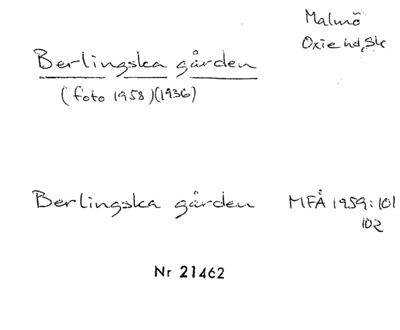 Malmö
Oxie hd, Sk
Berlingska gården
(foto 1958)(1936)
Berlingska gården MFÅ 1959:101
102
Nr 21462